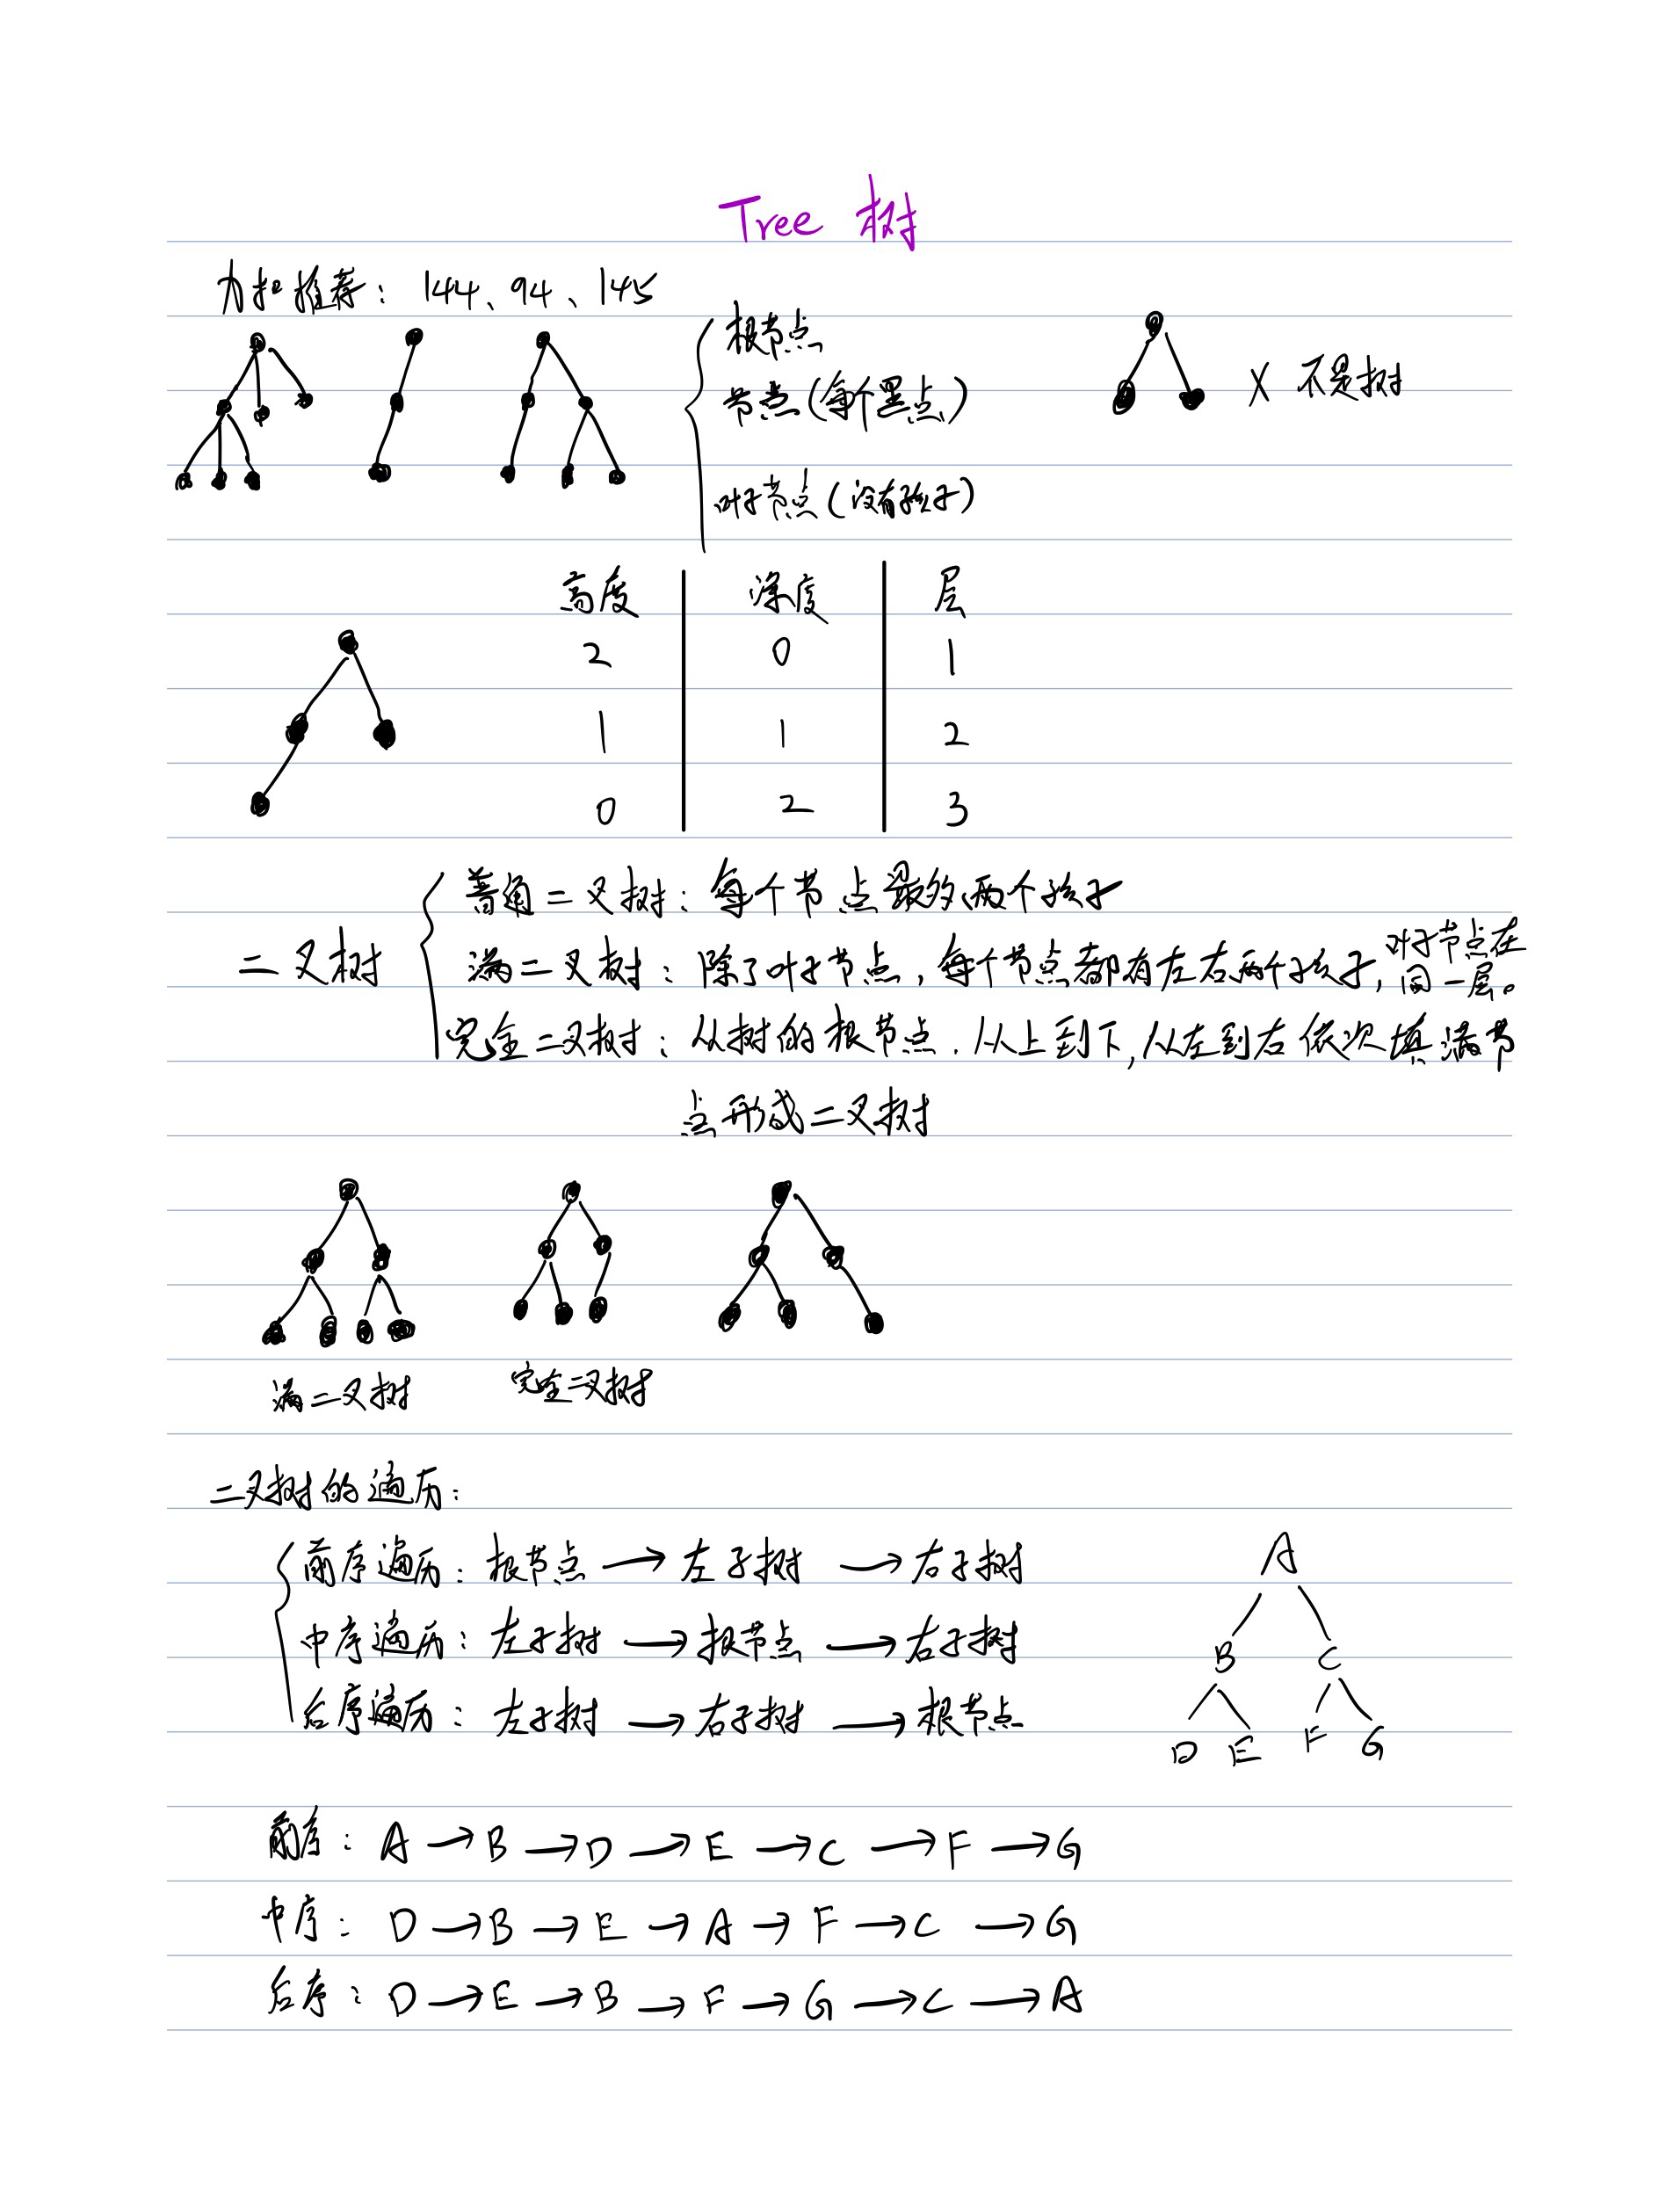 Tree 树
力扣推荐：144、94、145
根节点
节点（每个黑点）
叶子节点（没有孩子）
X 不是树
高度 深度 层
2 0 1
1 1 2
0 2 3
二叉树
普通二叉树：每个节点最多两个孩子
满二叉树：除了叶子节点，每个节点都有左右两个孩子，叶子节点在同一层。
完全二叉树：从树的根节点，从上到下，从左到右依次填满节
点形成二叉树
满二叉树 完全二叉树
二叉树的遍历：
前序遍历：根节点 → 左子树 → 右子树
中序遍历：左子树 → 根节点 → 右子树
后序遍历：左子树 → 右子树 → 根节点
A
B C
D E F G
前序：A → B → D → E → C → F → G
中序：D → B → E → A → F → C → G
后序：D → E → B → F → G → C → A